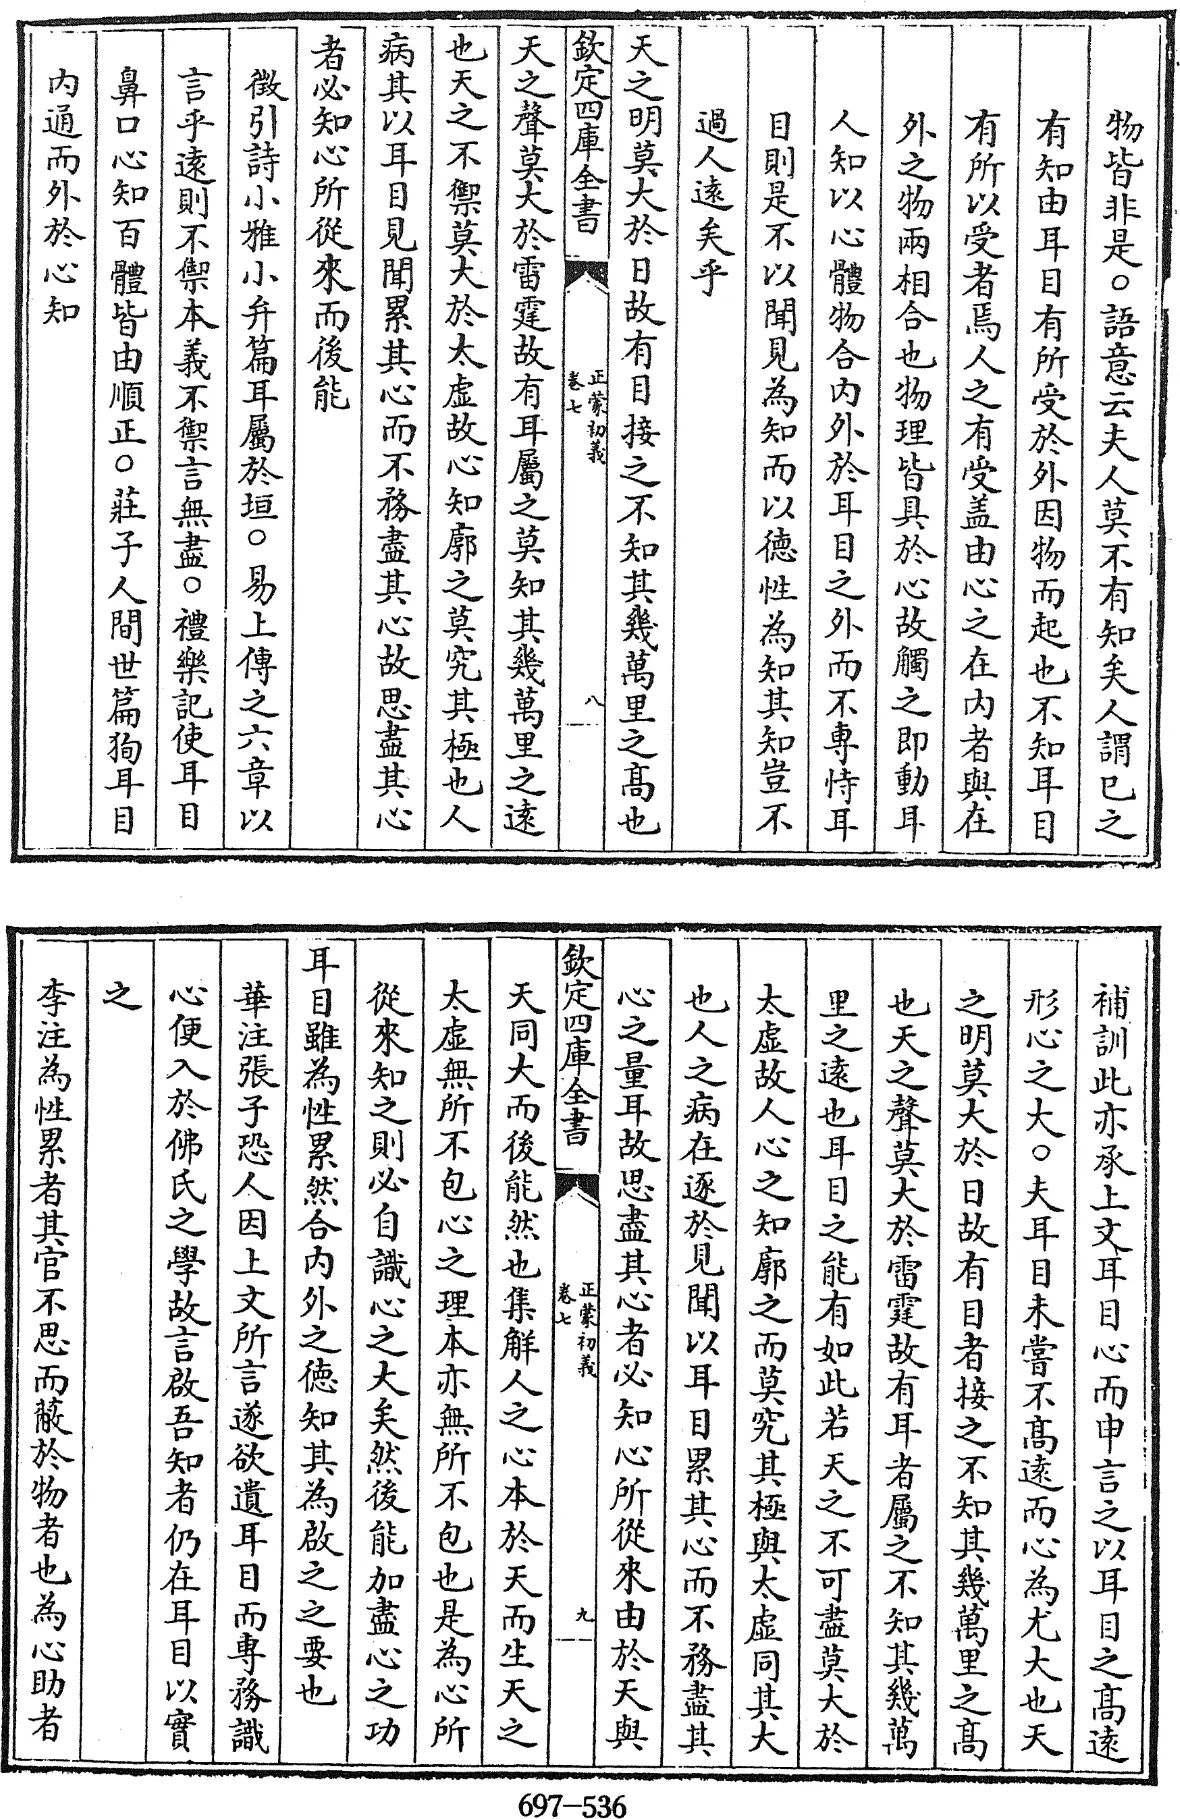 物皆非是○語意云夫人莫不有知矣人謂已之
有知由耳目有所受於外因物而起也不知耳目
有所以受者焉人之有受盖由心之在内者與在
外之物兩相合也物理皆具於心故觸之即動耳
人知以心體物合内外於耳目之外而不專恃耳
目則是不以聞見為知而以德性為知其知豈不
過人遠矣乎
天之明莫大於日故有目接之不知其幾萬里之髙也
欽定四庫全書
正蒙初義
卷七
八
天之聲莫大於雷霆故有耳屬之莫知其幾萬里之遠
也天之不禦莫大於太虛故心知廓之莫究其極也人
病其以耳目見聞累其心而不務盡其心故思盡其心
者必知心所從來而後能
徵引詩小雅小弁篇耳屬於垣○易上傳之六章以
言乎遠則不禦本義不禦言無盡○禮樂記使耳目
鼻口心知百體皆由順正○莊子人間世篇狥耳目
内通而外於心知
補訓此亦承上文耳目心而申言之以耳目之髙遠
形心之大○夫耳目未嘗不髙遠而心為尤大也天
之明莫大於日故有目者接之不知其幾萬里之髙
也天之聲莫大於雷霆故有耳者屬之不知其幾萬
里之遠也耳目之能有如此若天之不可盡莫大於
太虛故人心之知廓之而莫究其極與太虛同其大
也人之病在逐於見聞以耳目累其心而不務盡其
心之量耳故思盡其心者必知心所從來由於天與
欽定四庫全書
正蒙初義
卷七
九
天同大而後能然也集解人之心本於天而生天之
太虛無所不包心之理本亦無所不包也是為心所
從來知之則必自識心之大矣然後能加盡心之功
耳目雖為性累然合内外之德知其為啟之之要也
華注張子恐人因上文所言遂欲遺耳目而專務識
心便入於佛氏之學故言啟吾知者仍在耳目以實
之
李注為性累者其官不思而蔽於物者也為心助者
697-536